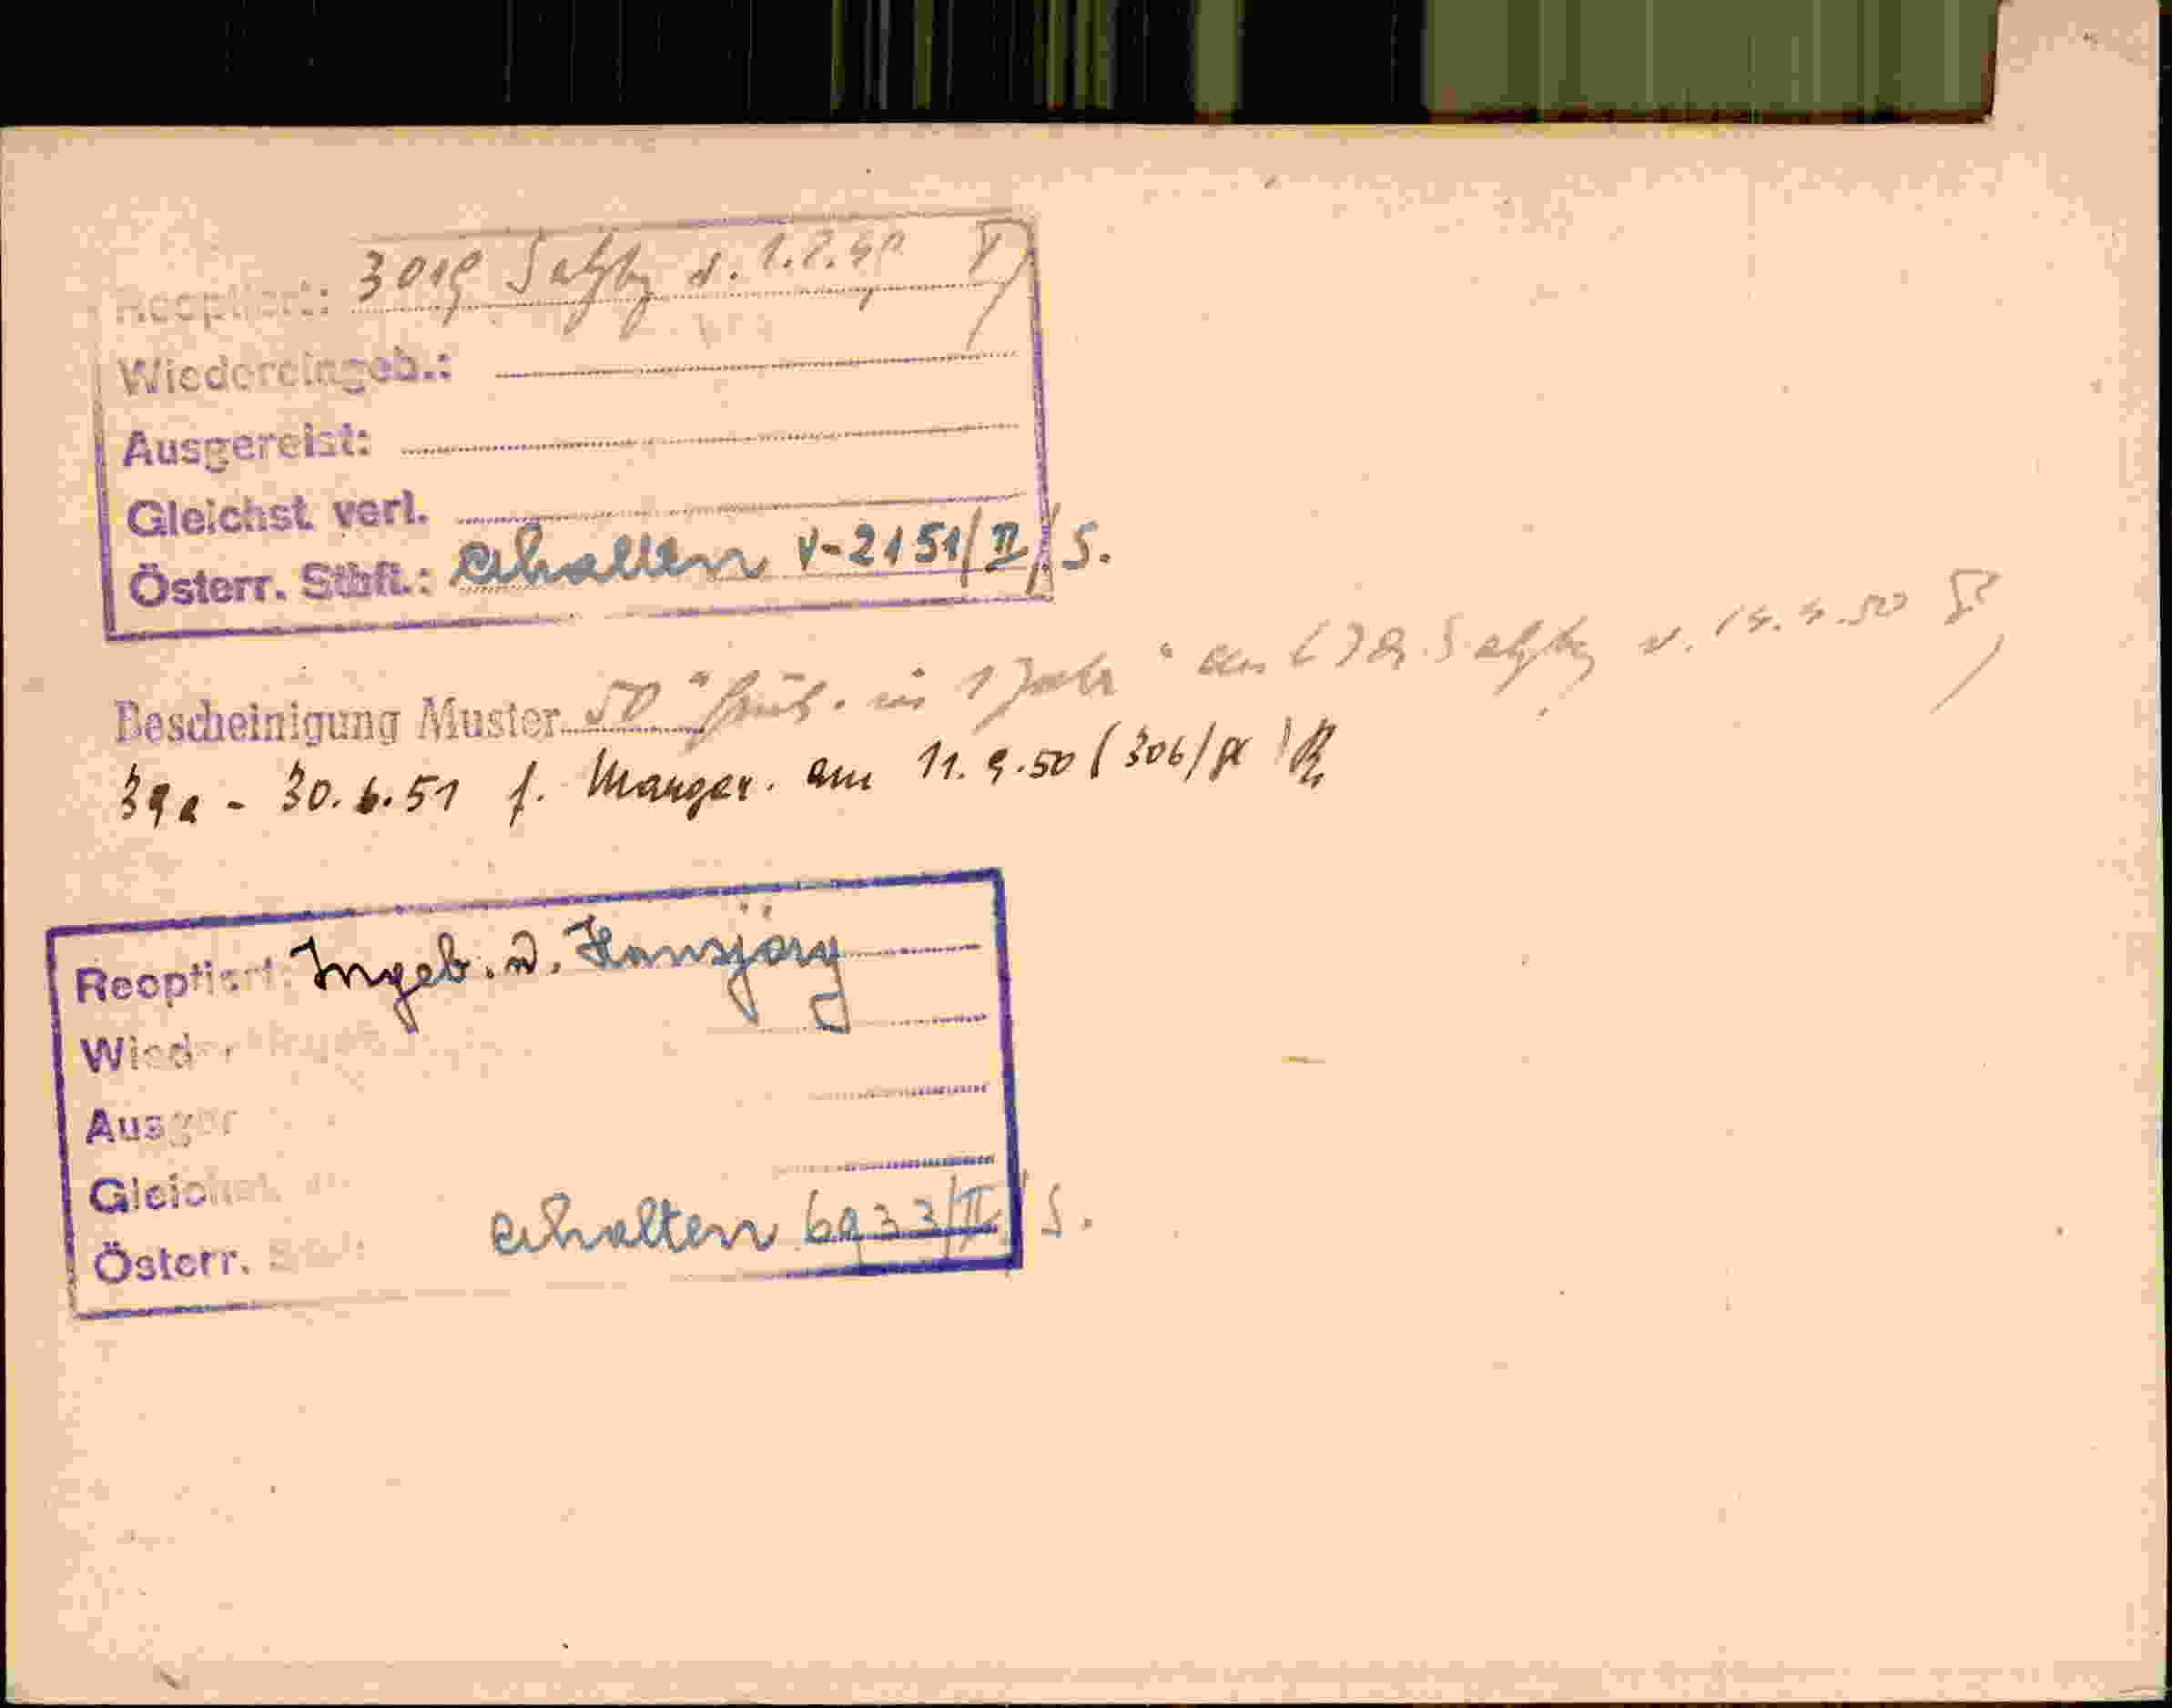 Reoptiert: 3019 Salzbg v. 1.2.50
Wiedereingeb.:
Ausgereist:
Gleichst. verl.
Österr. Stbft.: erhalten V-2151/II/S.
Bescheinigung Muster 50 " 1 Jahr " Salzbg v. 14.4.50
39a - 30.6.51 f. Manger. am 11.9.50 (306/
Reoptiert: Ingeb. d. Hansjörg
Wieder
Ausger
Gleichst.
Österr. erhalten 6933/II/S.